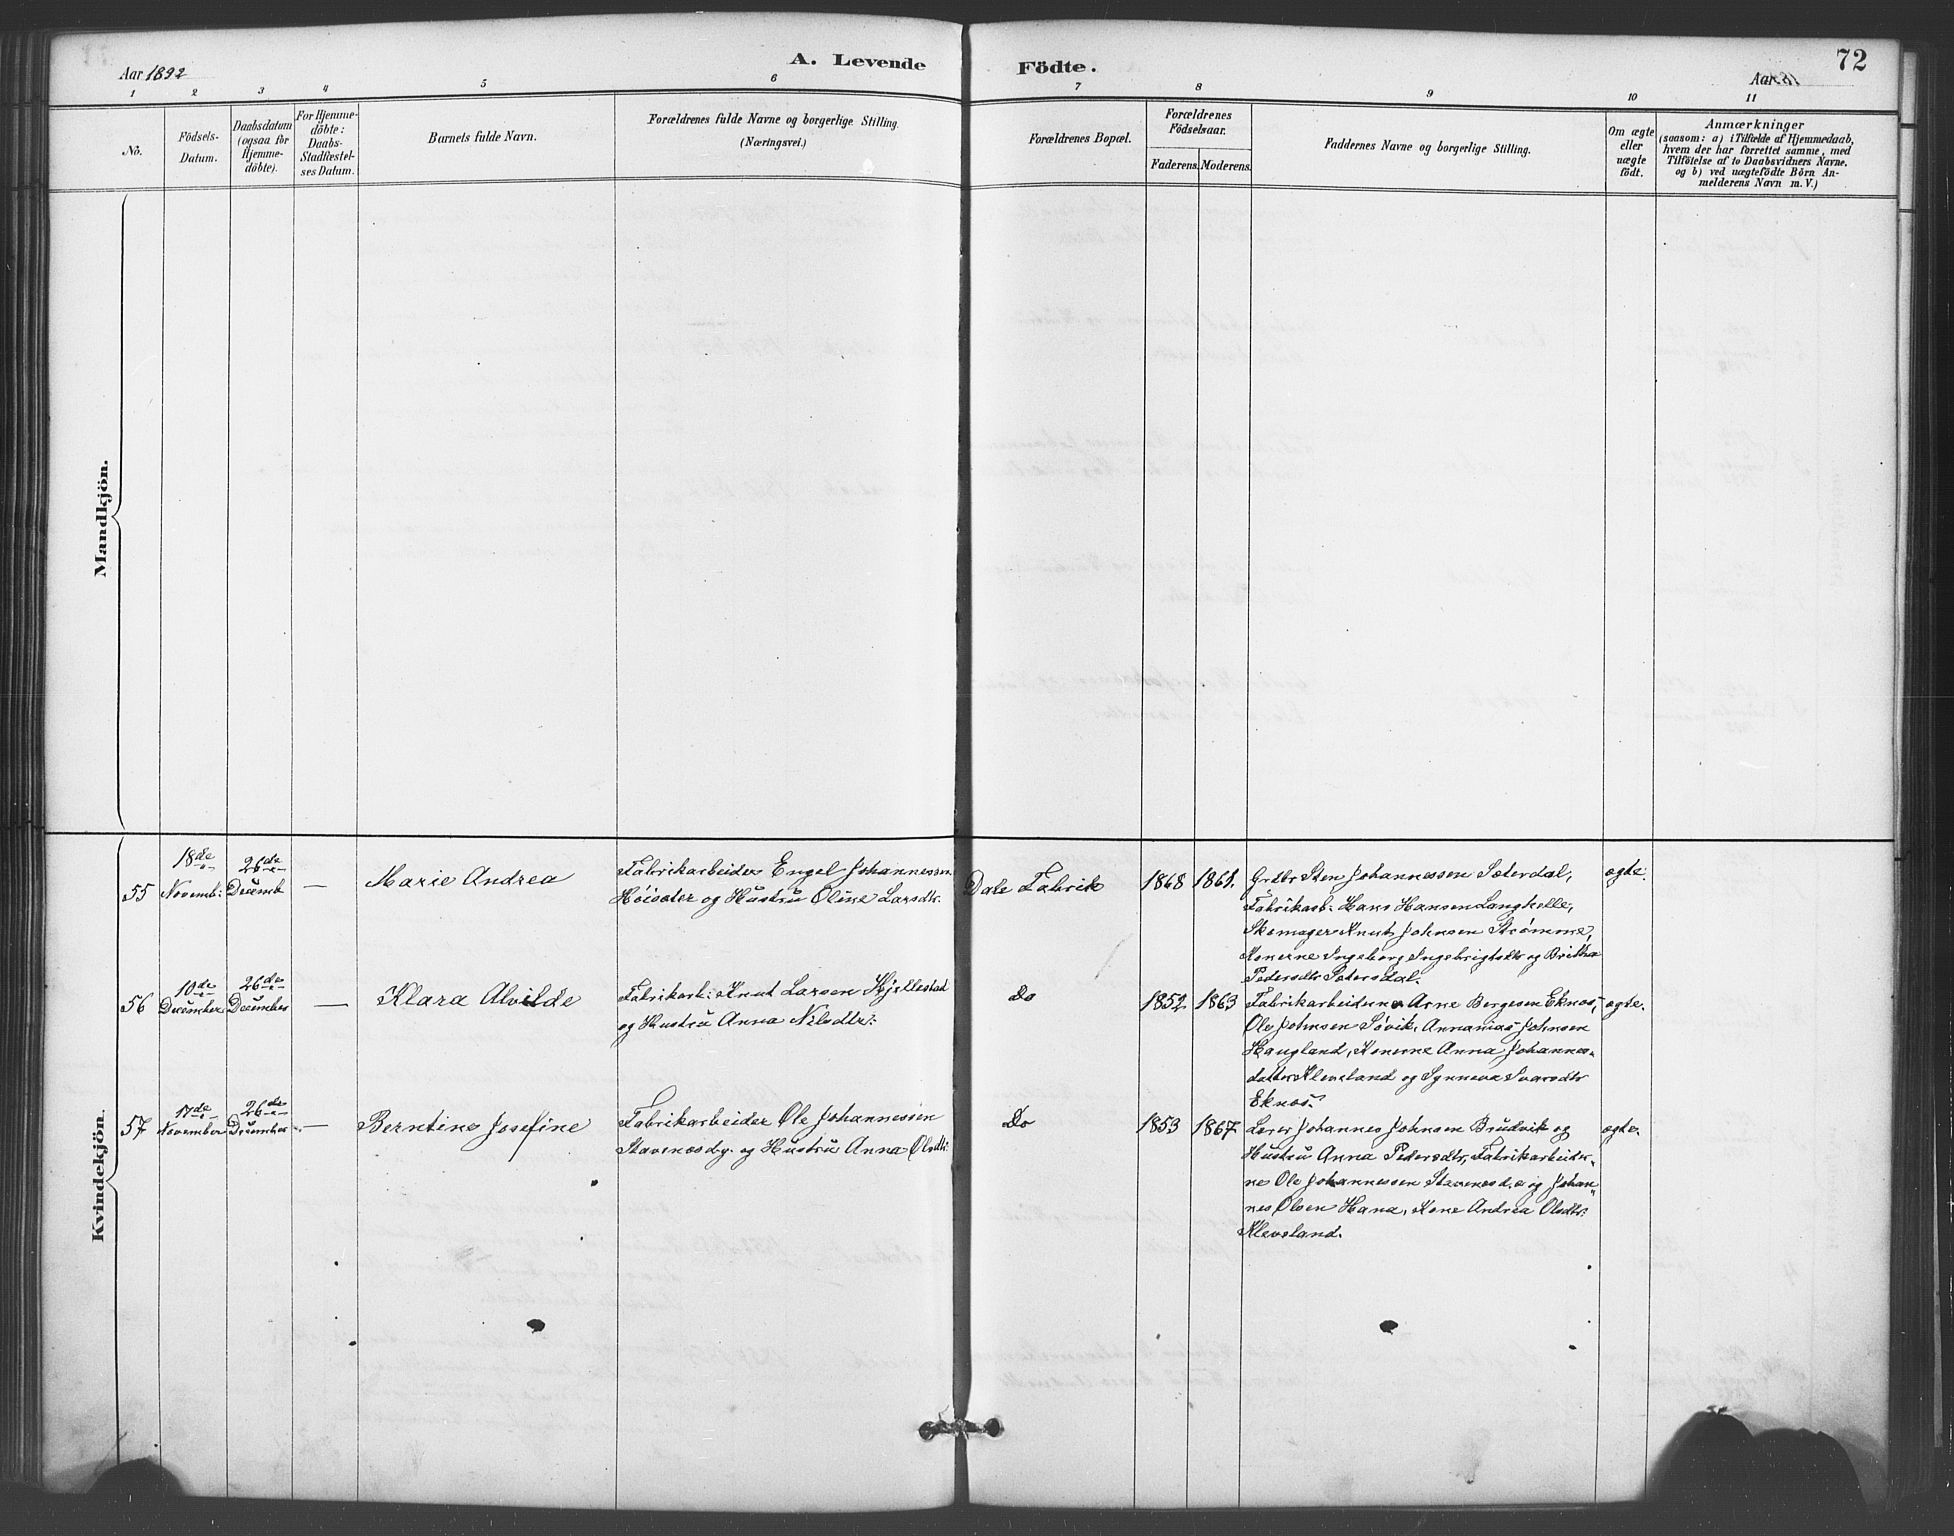 Aar 1892
A. Levende
Födte.
72
Aar
1
2
3
4
5
6
7
8
9
10
11
No.
Födsels-
Datum.
Daabsdatum
(ogsaa for
Hjemme-
döbte).
For Hjemme-
döbte:
Daabs-
Stadfestel-
ses Datum.
Barnets fulde Navn.
Forældrenes fulde Navne og borgerlige Stilling.
(Næringsvei.)
Forældrenes Bopæl.
Forældrenes
Födselsaar.
Faderens.
Moderens.
Faddernes Navne og borgerlige Stilling.
Om ægte
eller
uægte
födt.
Anmærkninger
(saasom: a) i Tilfælde af Hjemmedaab,
hvem der har forrettet samme, med
Tilföielse af to Daabsvidners Navne.
og b) ved uægtefödte Börn An-
melderens Navn m. V.)
Mandkjön.
Kvindekjön.
55
18de
Novemb:
26de
Decemb
—
Marie Andrea
Fabrikarbeider Engel Johannessen
Höisæter og Hustru Oline Larsdtr.
Dale Fabrik
1868
1861.
Grdbr Sten Johannessen Sæterdal,
Fabrikarb. Hans Hansen Langhelle,
Skomager Knut Johnsen Strømme,
Konerne Ingeborg Ingebrigtsdtr og Britha
Pedersdtr Sætersdal.
ægte.
56
10de
December
26de
December
—
Klara Alvilde
Fabrikarb: Knut Larsen Hjellestad
og Hustru Anna Nilsdtr:
Do
1852
1863
Fabrikarbeiderne Arne Bergesen Eknæs,
Ole Johnsen Søvik, Annanias Johnsen
Haugland, Konerne Anna Johannes-
datter Kleveland og Synneva Ivarsdtr
Eknæs.
ægte.
57
17de
November
26de
December
—
Berntine Josefine
Fabrikarbeider Ole Johannessen
Stavenæsdy. og Hustru Anna Olsdtr:
Do
1853
1867
Lærer Johannes Johnsen Brudvik og
Hustru Anna Pedersdtr, Fabrikarbeider-
ne Ole Johannessen Stavenæsd. og Johan-
nes Olsen Hana, Kone Andrea Olsdtr:
Kleveland.
ægte.